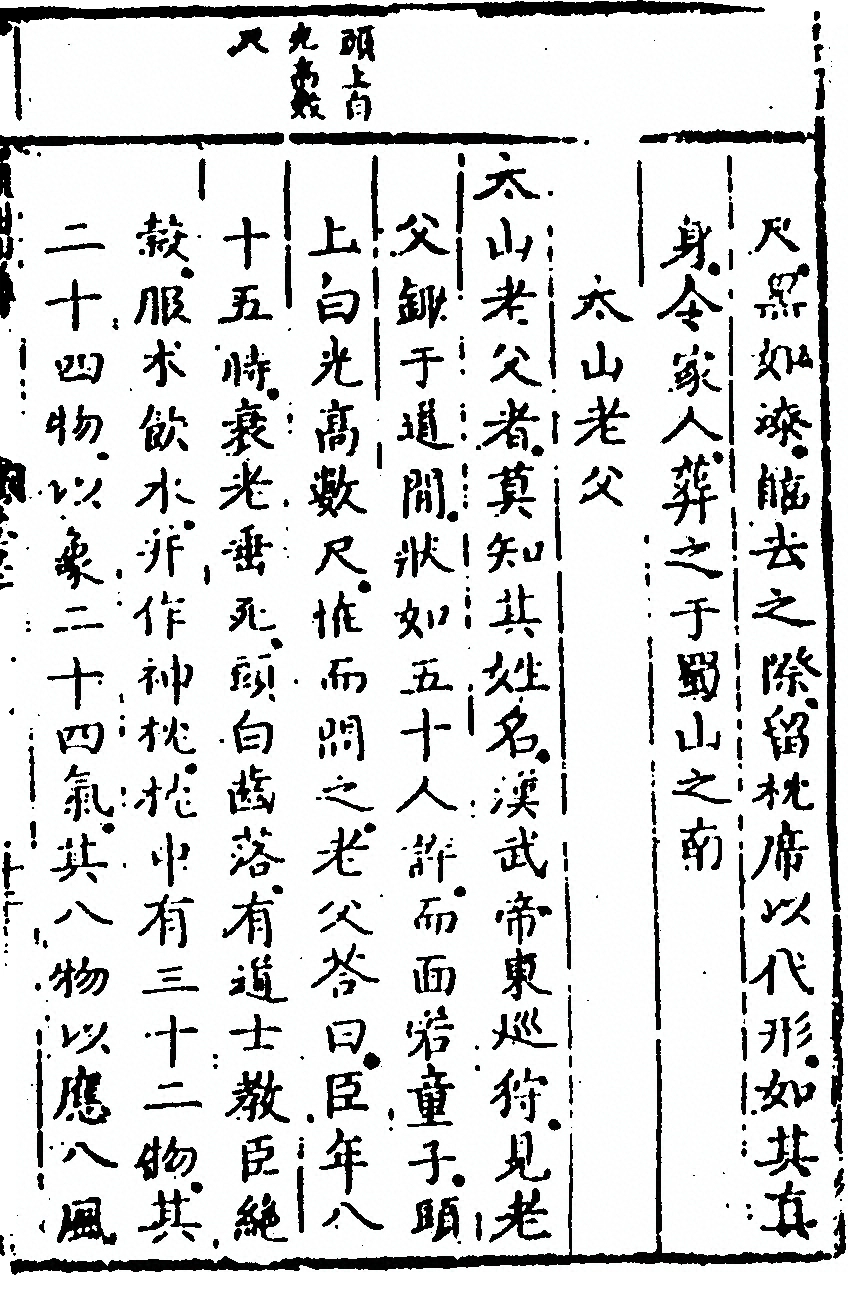 頭上白
光高數
尺
尺黑如漆臨去之際留枕席以代形如其真
身令家人葬之于蜀山之南
太山老父
太山老父者莫知其姓名漢武帝東巡狩見老
父鋤于道間狀如五十人許而面若童子頭
上白光高數尺怪而問之老父答曰臣年八
十五時衰老垂死頭白齒落有道士教臣絕
穀服朮飲水并作神枕枕中有三十二物其
二十四物以象二十四氣其八物以應八風